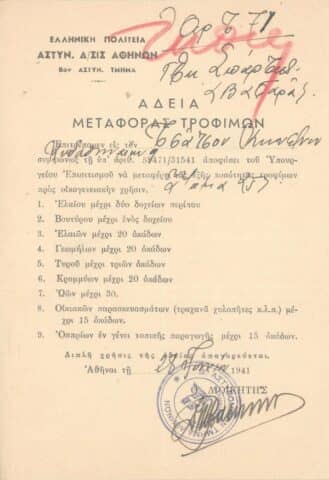 ΕΛΛΗΝΙΚΗ ΠΟΛΙΤΕΙΑ
ΑΣΤΥΝ. Δ/ΣΙΣ ΑΘΗΝΩΝ
8ον ΑΣΤΥΝ. ΤΜΗΜΑ
ΑΔΕΙΑ
ΜΕΤΑΦΟΡΑΣ ΤΡΟΦΙΜΩΝ
Ἐπιτρέπομεν εἰς τὸν
συμφώνως τῇ ὑπ' ἀριθ. 53471/31541 ἀποφάσει τοῦ Ὑπουρ-
γείου Ἐπισιτισμοῦ νὰ μεταφέρῃ ἑξῆς ποσότητας τροφίμων
πρὸς οἰκογενειακὴν χρῆσιν.
1. Ἐλαίου μέχρι δύο δοχείων περίπου
2. Βουτύρου μέχρι ἑνὸς δοχείου
3. Ἐλαιῶν μέχρι 20 ὀκάδων
4. Γεωμήλων μέχρι 20 ὀκάδων
5. Τυροῦ μέχρι τριῶν ὀκάδων
6. Κρομμύων μέχρι 20 ὀκάδων
7. Ὠῶν μέχρι 30.
8. Οἰκιακῶν παρασκευασμάτων (τραχανᾶ χυλοπῆτες κ.λ.π.) μέ-
χρι 15 ὀκάδων.
9. Ὀσπρίων ἐν γένει τοπικῆς παραγωγῆς μέχρι 15 ὀκάδων.
Διπλῆ χρῆσις τῆς ἀδείας ἀπαγορεύεται.
Ἀθῆναι τῇ 1941
Ὁ ΔΙΟΙΚΗΤΗΣ